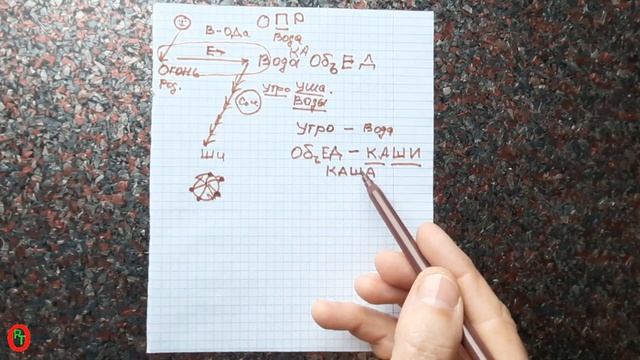 ОПР
В-ОДа
Вода
Е→
КА
Огонь
Вода ОбъЕД
Род.
Утро Уша.
Воды
Соч.
Утро - Вода
ШЧ
ОбъЕД - КАШИ
КАША
RT